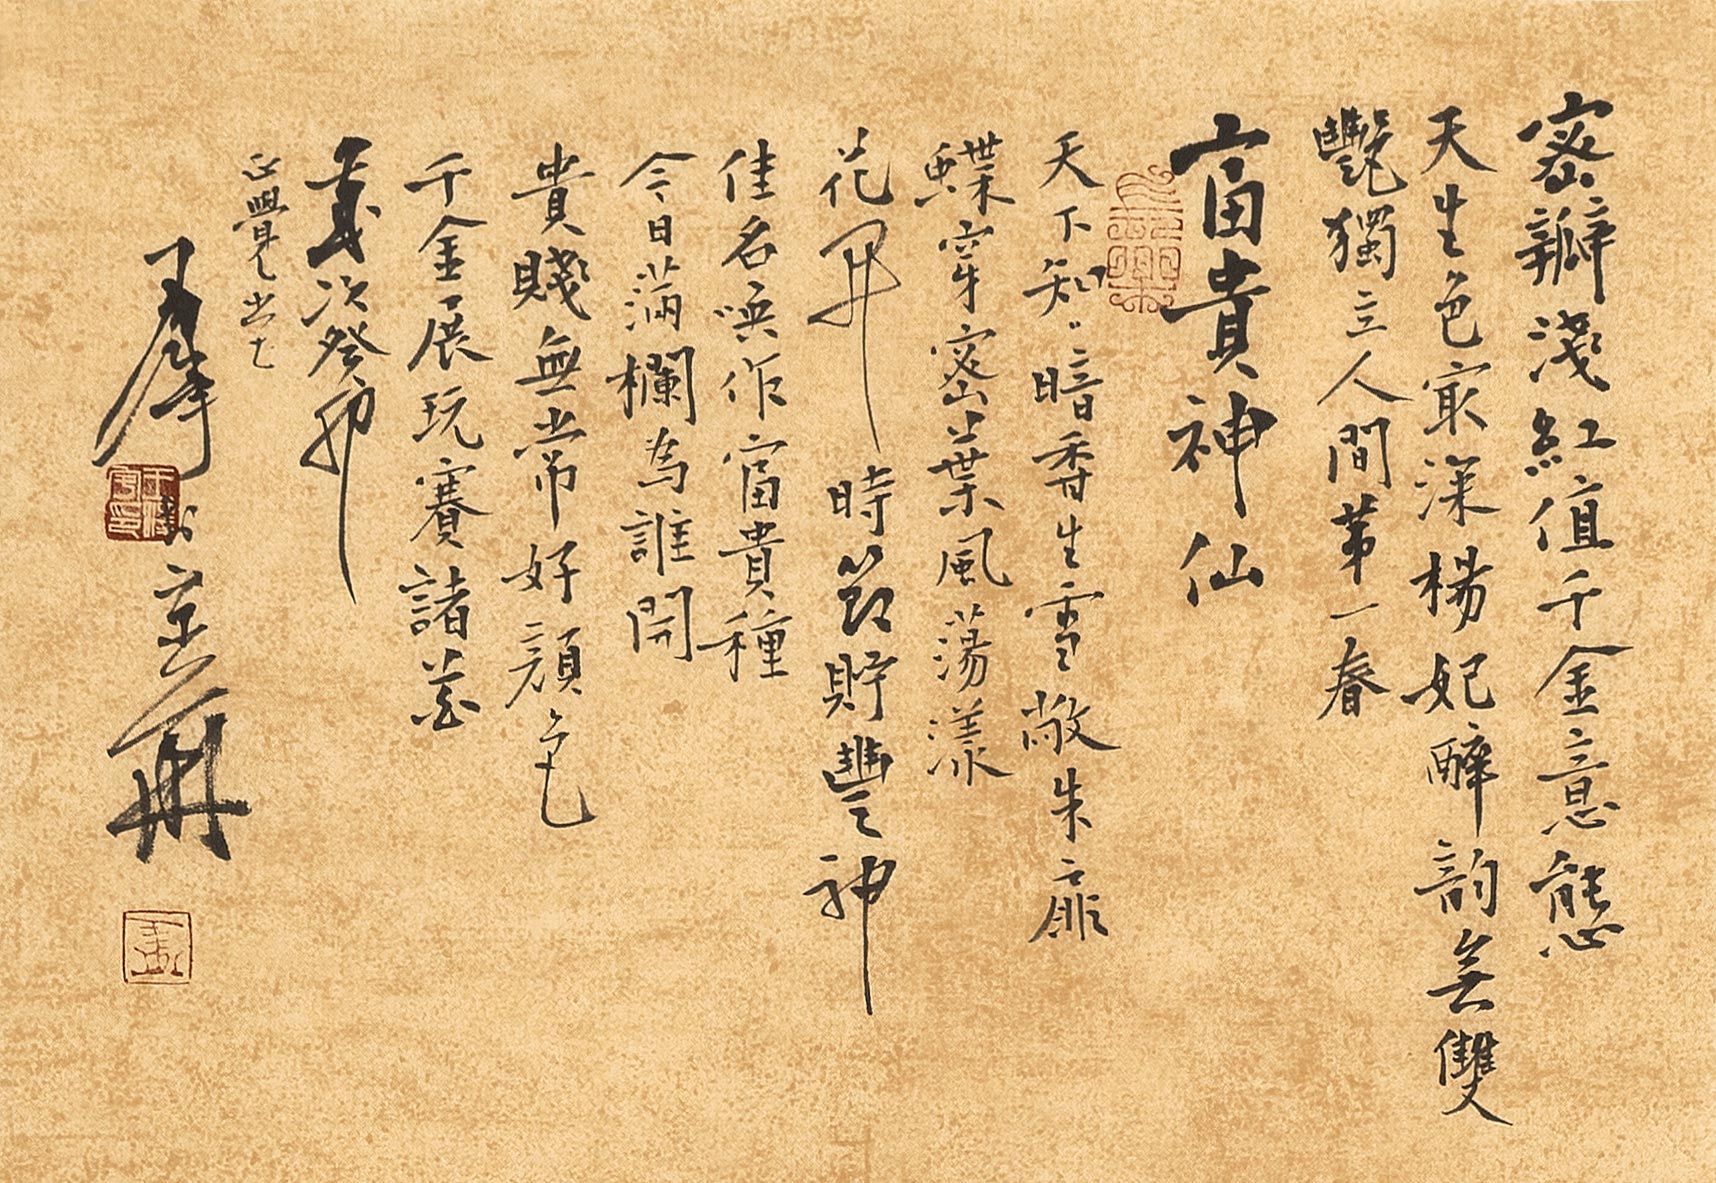 密瓣淺紅值千金意態
天生色最深楊妃醉韵無雙
豔獨立人間第一春
富貴神仙
天下知〻暗香生雪敞朱扉
蝶穿密葉風蕩漾
花開時節貯豐神
佳名喚作富貴種
今日滿欄為誰開
貴賤無常好顏色
千金展玩賽諸花
歲次癸卯
正覺堂主
於京華